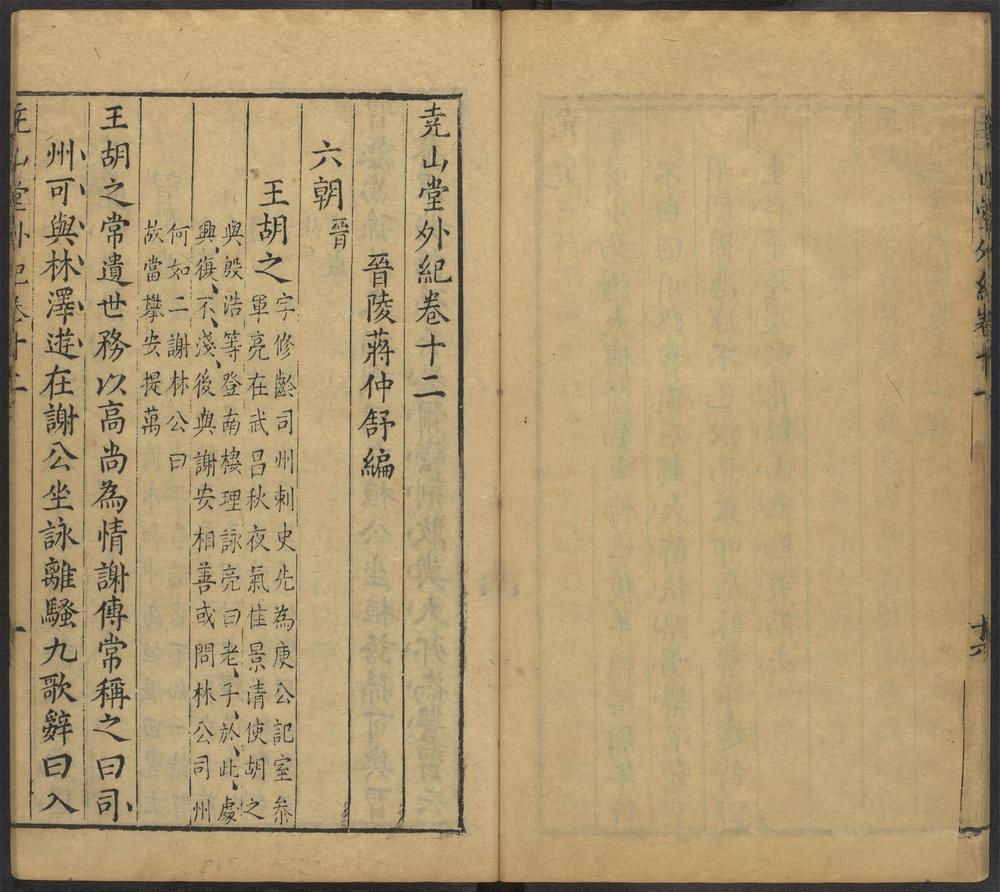 尭山堂外紀卷十一
十六
尭山堂外紀卷十二
晉陵蔣仲舒編
六朝晉
王胡之字修齡司州刺史先為庾公記室參
軍亮在武昌秋夜氣佳景清使胡之
與殷浩等登南樓理詠亮曰老子於此處
興復不淺後與謝安相善或問林公司州
何如二謝林公曰
故當攀安提萬
王胡之常遺世務以高尚為情謝傅常稱之曰司
州可與林澤遊在謝公坐詠離騷九歌辭曰入
尭山堂外紀卷十二
一